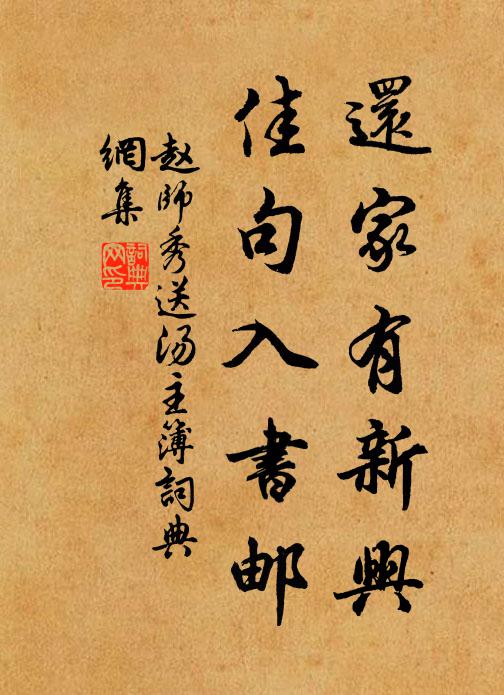 還家有新興
佳句入書邮
赵師秀送湯主簿詞典
網集
詞典
网印